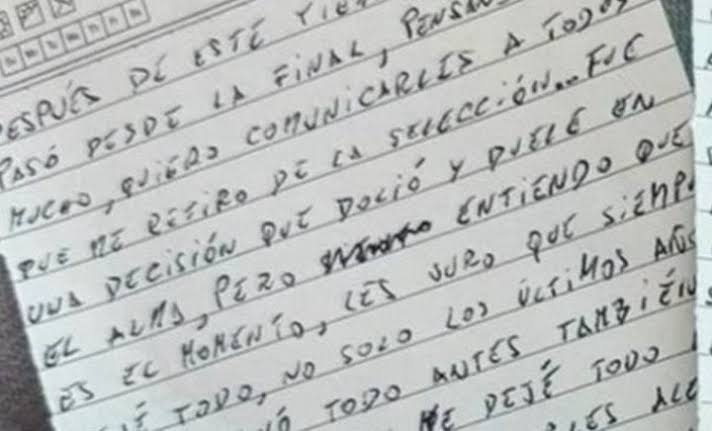 DESPUÉS DE ESTE TIE
PASÓ DESDE LA FINAL, PENSAN
MUCHO, QUIERO COMUNICARLES A TODOS
QUE ME RETIRO DE LA SELECCIÓN... FUE
UNA DECISIÓN QUE DOLIÓ Y DUELE EN
EL ALMA, PERO ENTIENDO QUE
ES EL MOMENTO, LES JURO QUE SIEMPR
É TODO, NO SOLO LOS ÚLTIMOS AÑOS
TODO ANTES TAMBIÉN
ME DEJÉ TODO
LES ALE